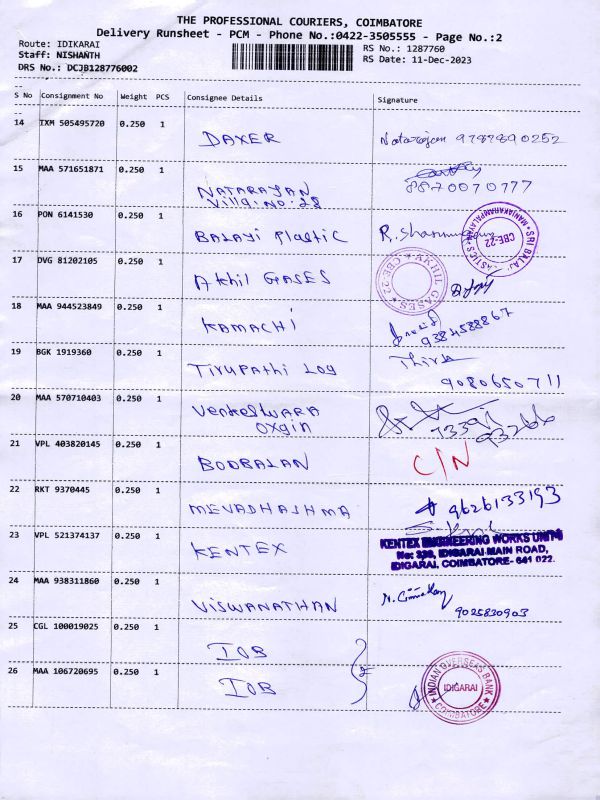 THE PROFESSIONAL COURIERS, COIMBATORE
Delivery Runsheet - PCM - Phone No.:0422-3505555 - Page No.:2
Route: IDIKARAI
RS No.: 1287760
Staff: NISHANTH
RS Date: 11-Dec-2023
DRS No.: DCJB128776002
S No Consignment No Weight PCS Consignee Details Signature
14 IXM 505495720 0.250 1
DAXER Natarajan 9787890252
15 MAA 571651871 0.250 1
8870070777
NATARAYAN
Villa.No:28
16 PON 6141530 0.250 1
BALAYI Plastic R. Shanmugam
SRI BALAJI PLASTICS * MANIAKARAMPALAYAM * CBE-22
17 DVG 81202105 0.250 1
AKhil GASES
* AKHIL GASES * CBE-22
18 MAA 944523849 0.250 1
KAMACHI
9384588867
19 BGK 1919360 0.250 1
TIRUPATHI LOG
9080650711
20 MAA 570710403 0.250 1
VENKELWARA
OXGIN
93266
21 VPL 403820145 0.250 1
BOOBALAN C/N
22 RKT 9370445 0.250 1
MEVADHAJHMA 9626133193
23 VPL 521374137 0.250 1
KENTEX
KENTEX ENGINEERING WORKS UNIT
No: 330, IDIGARAI MAIN ROAD,
IDIGARAI, COIMBATORE- 641 022.
24 MAA 938311860 0.250 1
VISWANATHAN
9025830903
25 CGL 100019025 0.250 1
IOB
26 MAA 106720695 0.250 1
IOB
INDIAN OVERSEAS BANK
IDIGARAI
* COIMBATORE *